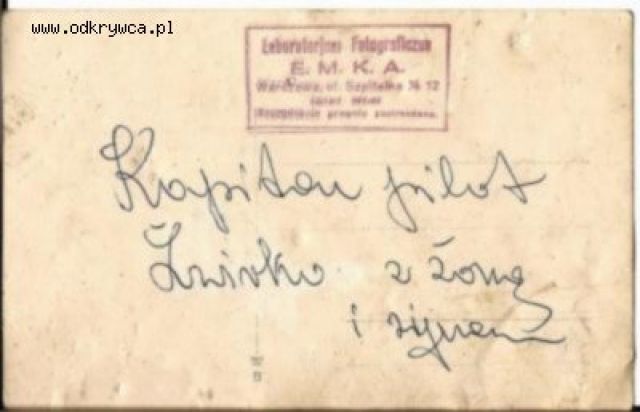 www.odkrywca.pl
Laboratorjum Fotograficzne
E. M. K. A.
Warszawa, ul. Szpitalna № 12
prawnie zastrzeżone.
Kapitan pilot
Żwirko z żoną
i synem